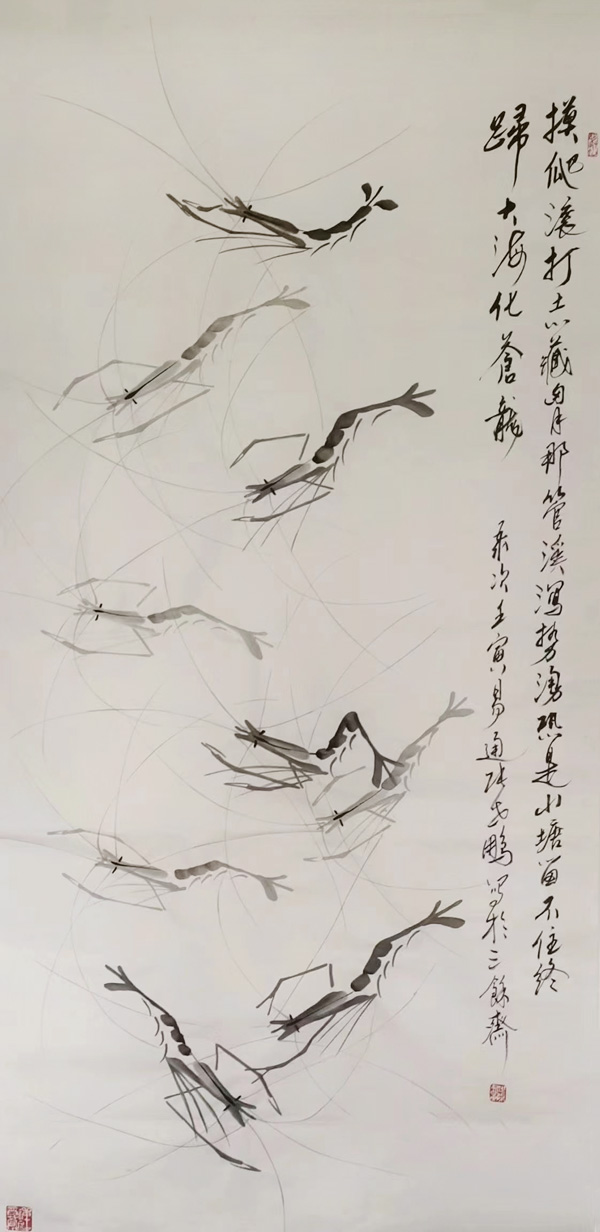 摸爬滚打志藏胸那管溪深势湧恐是小塘留不住终
歸大海化蒼龍
歲次壬寅易通張世鵬寫於三餘齋